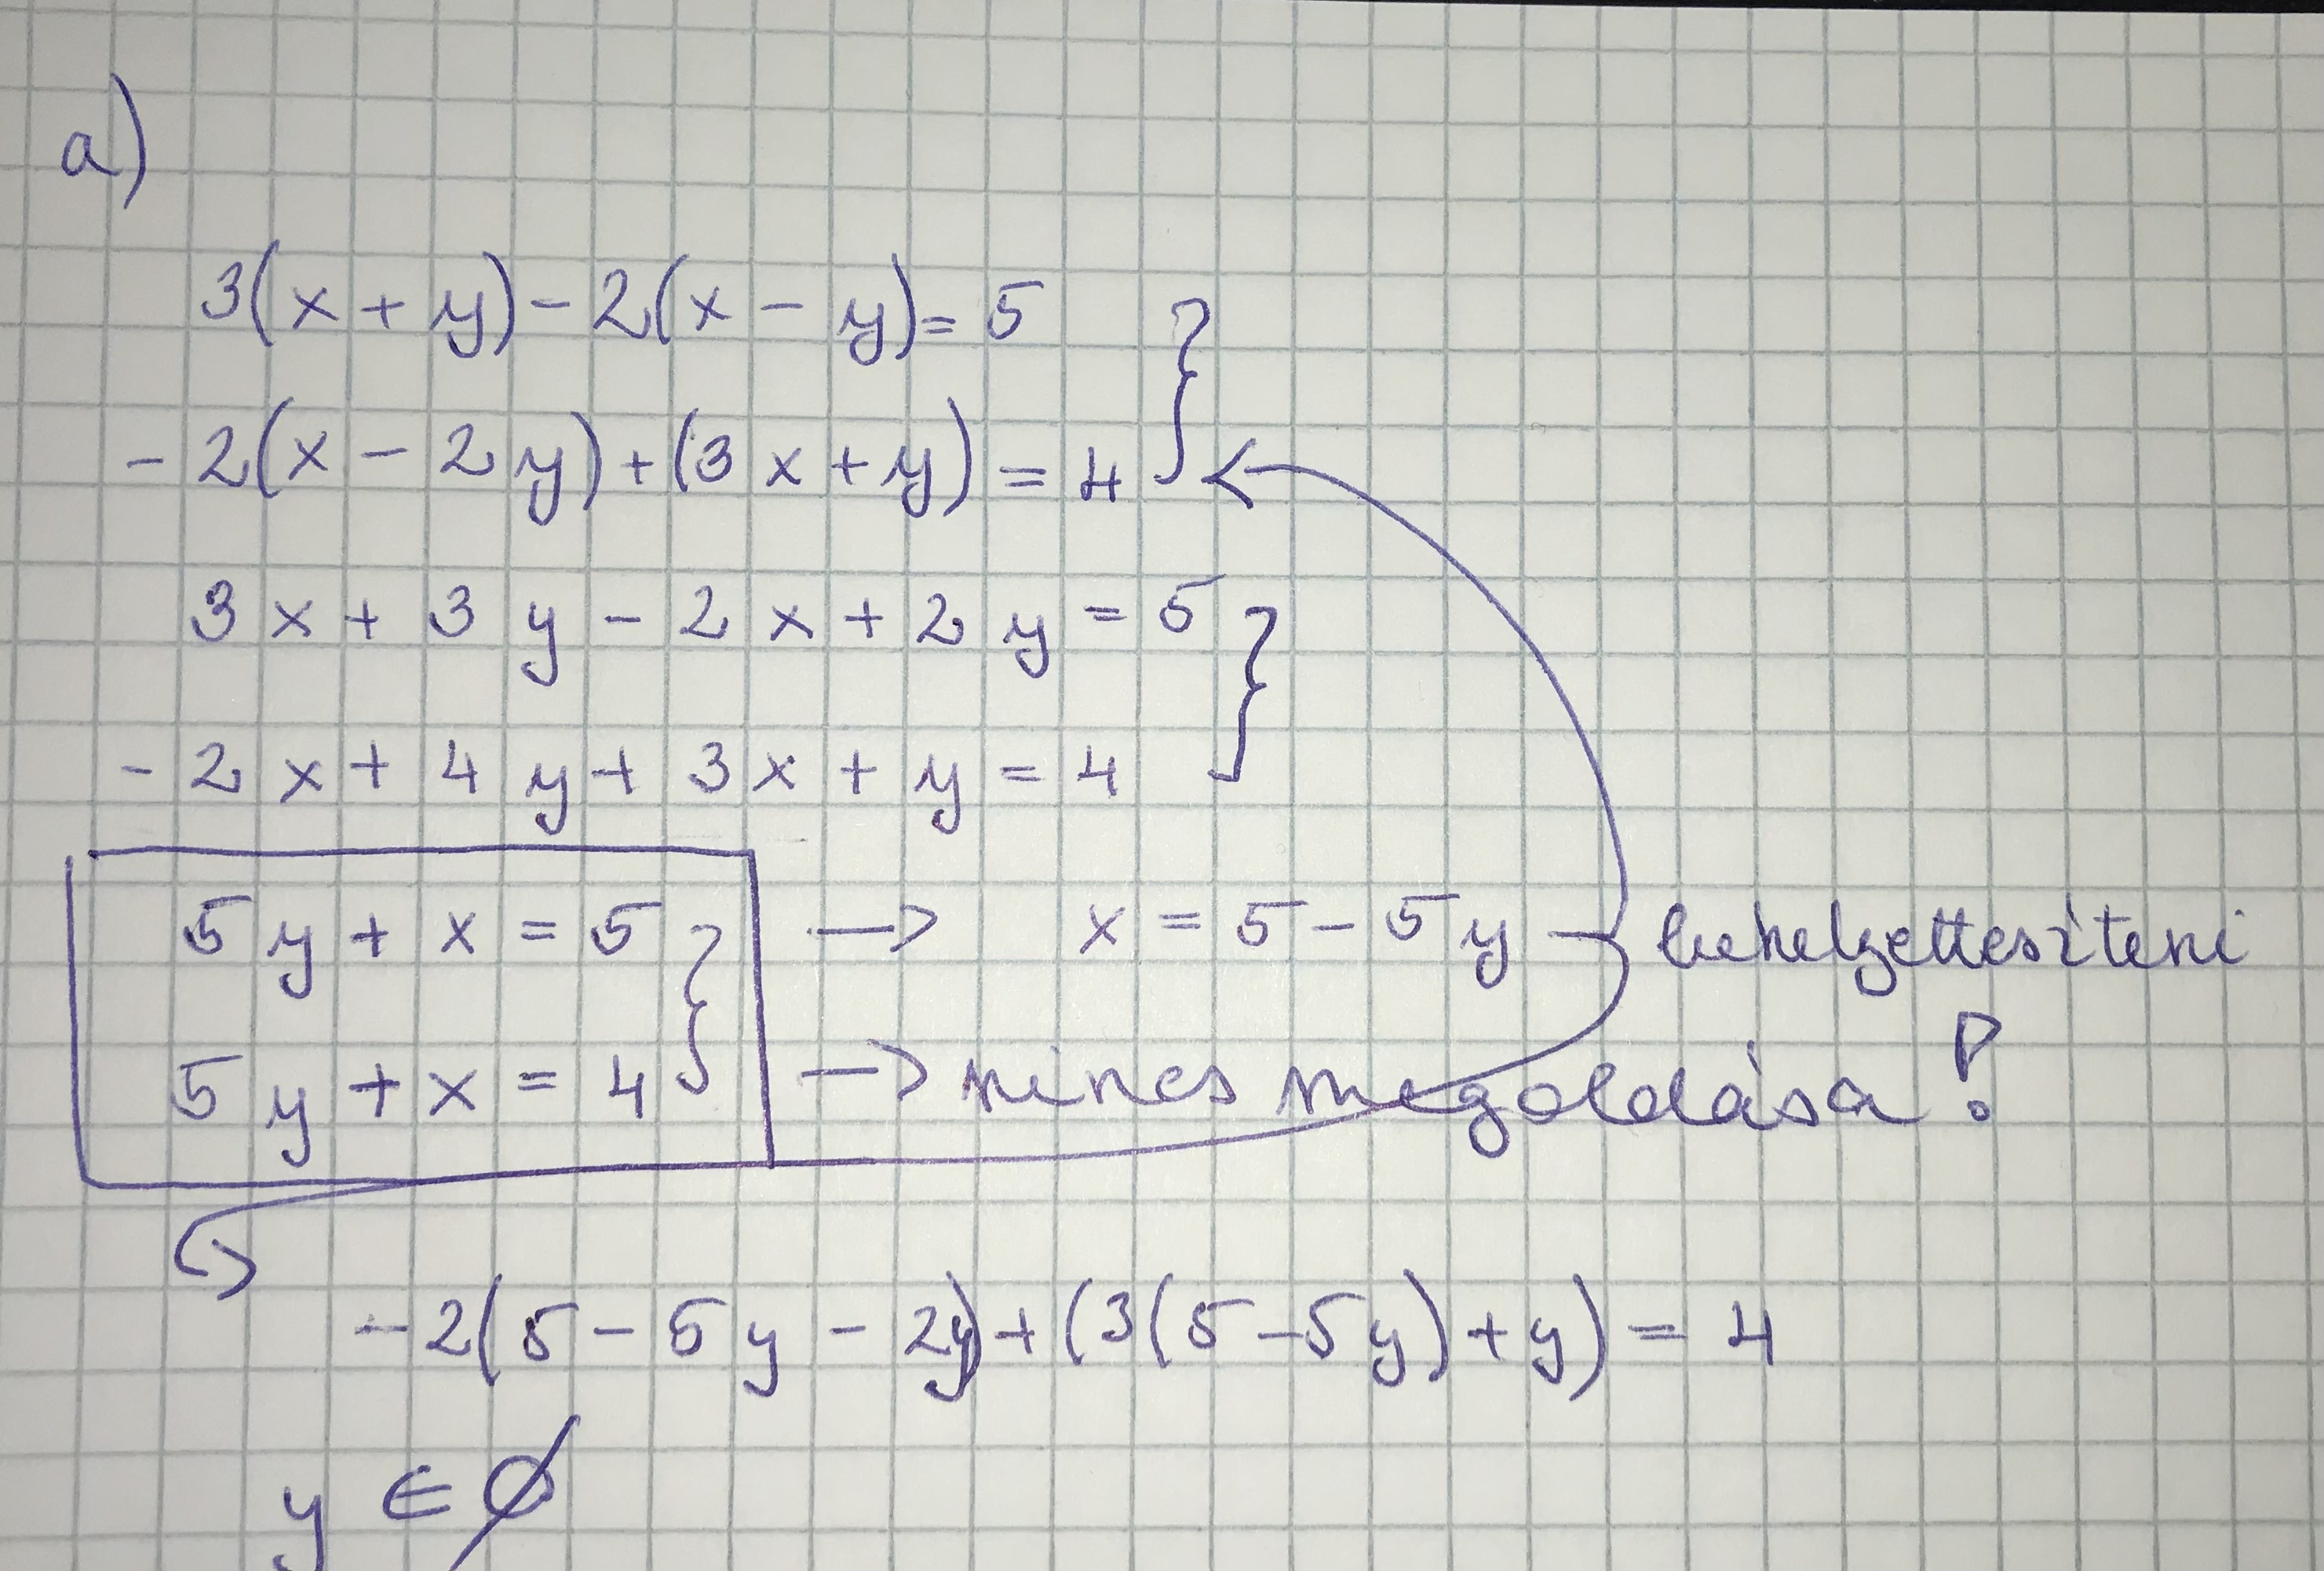 a)
3(x+y)-2(x-y)=5
-2(x-2y)+(3x+y)=4
3x+3y-2x+2y=5
-2x+4y+3x+y=4
5y+x=5 → x=5-5y behelyettesíteni
5y+x=4 → nincs megoldása!
-2(5-5y-2y)+(3(5-5y)+y)=4
y∈∅